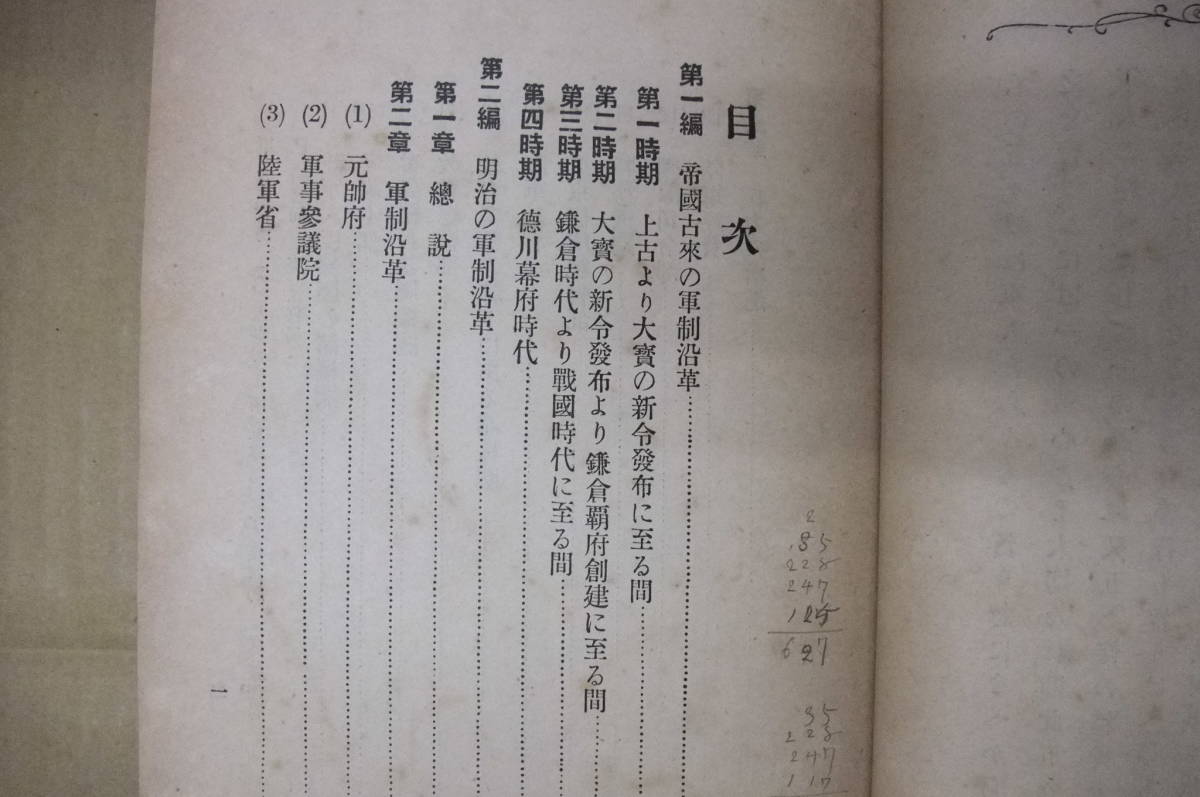 目次
第一編 帝國古來の軍制沿革
第一時期 上古より大寳の新令發布に至る間
第二時期 大寳の新令發布より鎌倉覇府創建に至る間
第三時期 鎌倉時代より戰國時代に至る間
第四時期 德川幕府時代
第二編 明治の軍制沿革
第一章 總說
第二章 軍制沿革
(1) 元帥府
(2) 軍事參議院
(3) 陸軍省
一
2
228
247
627
228
247
117